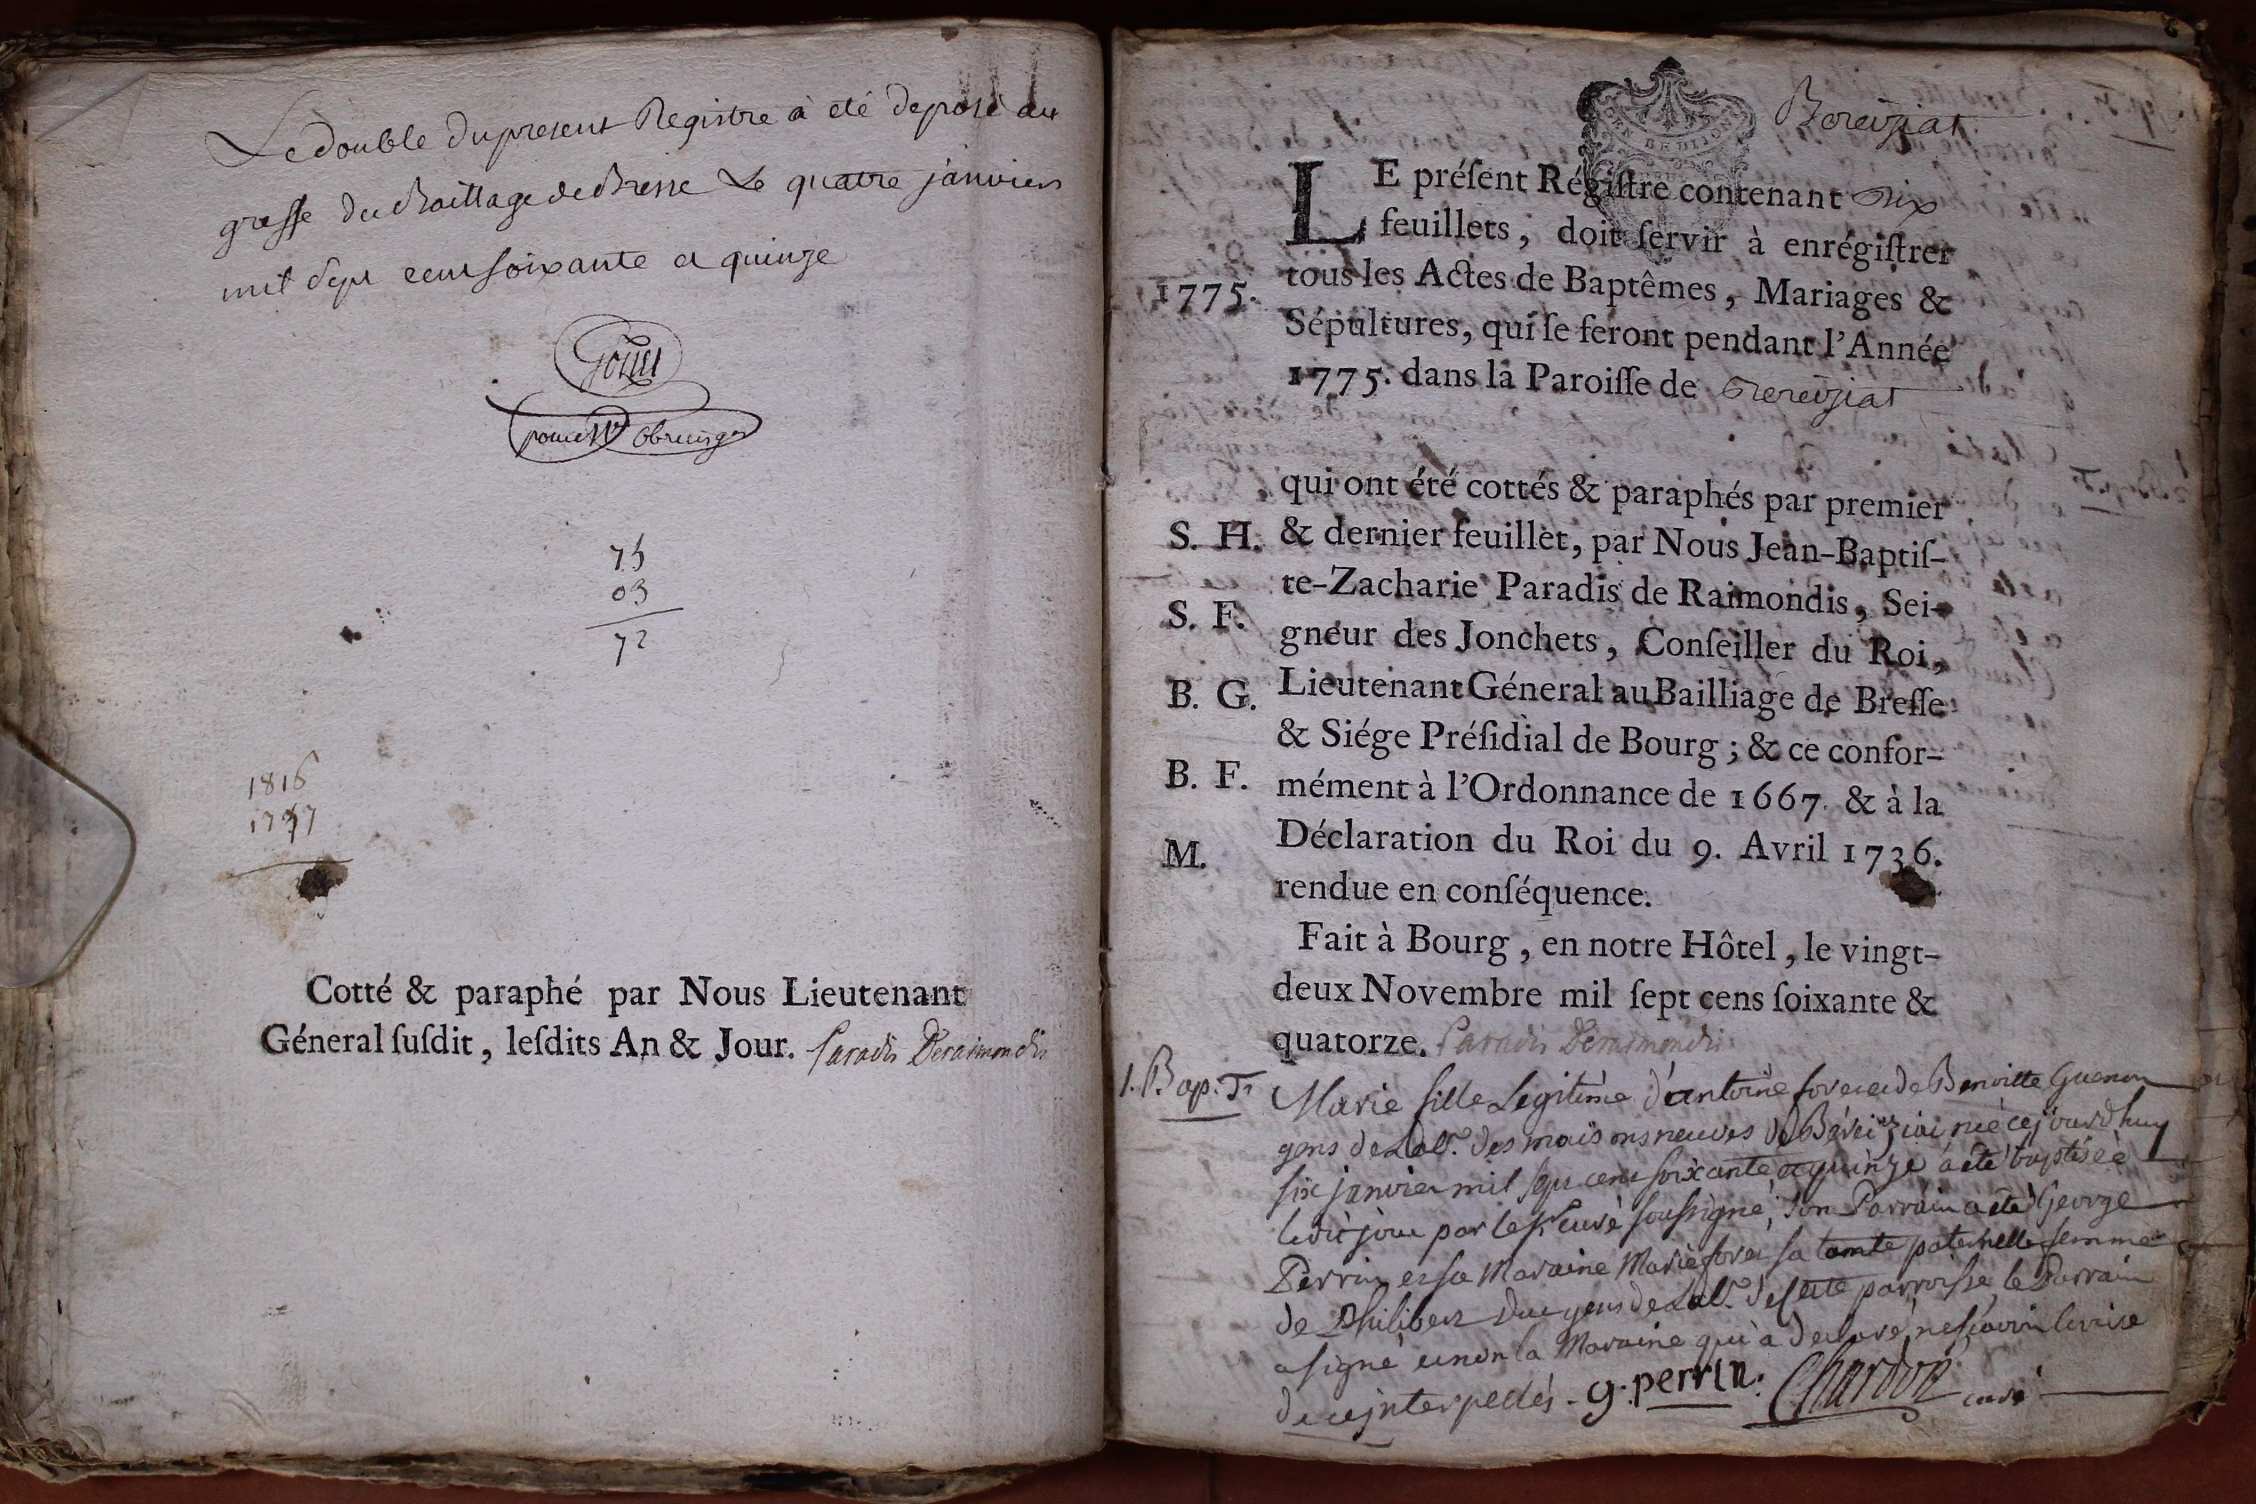 Le double du present Registre à eté deposé au
greffe du Baillage de Bresse Le quatre janvier
mil sept cent soixante et quinze
75
03
72
1816
Cotté & paraphé par Nous Lieutenant
Géneral ſuſdit, leſdits An & Jour. Paradis Deraimondis
Bereiziat
LE préſent Régiſtre contenant dix
feuillets, doit ſervir à enrégiſtrer
tous les Actes de Baptêmes, Mariages &
1775.
Sépultures, qui ſe feront pendant l'Année
1775. dans la Paroiſſe de Bereiziat
qui ont été cottés & paraphés par premier
S. H.
& dernier feuillet, par Nous Jean-Baptiſ-
te-Zacharie Paradis de Raimondis, Sei-
S. F.
gneur des Jonchets, Conſeiller du Roi,
B. G.
Lieutenant Géneral au Bailliage de Breſſe
& Siége Préſidial de Bourg; & ce confor-
B. F.
mément à l'Ordonnance de 1667. & à la
M.
Déclaration du Roi du 9. Avril 1736.
rendue en conſéquence.
Fait à Bourg, en notre Hôtel, le vingt-
deux Novembre mil ſept cens ſoixante &
quatorze. Paradis Deraimondis
1. Bap. T
Marie fille Legitime d'antoine forer et de Benoitte Guenon
gens de Lab.r des maisons neuves de Béreiziat née cejourdhuy
six janvier mil sept cent soixante et quinze a été baptisée
ledit jour par le curé soussigné, son Parrain a été George
Perrin et sa Maraine Marie forer sa tante paternelle femme
de Philibert Duc gens de Lab.r de cette parroisse, le Parrain
a signé et non la Maraine qui a declaré ne sçavoir
de ce interpellés. g. perrin. Chardon curé